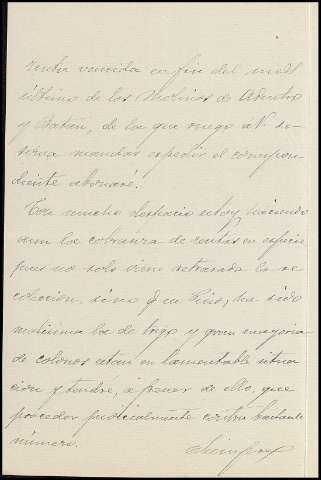 renta vencida en fin del mes
último de los Molinos de Adentro
y Batán, de la que ruego a V. se
sirva mandar expedir el correspon-
diente abonaré.
Con mucho despacio estoy haciendo
la cobranza de rentas en especie
pues no solo viene retrasada la re-
colección, sino q en ha sido
malísima la de trigo y gran mayoría
de colonos están en lamentable situa-
ción y tendré, a pesar de ello, que
proceder judicialmente contra bastante
número.
Siempre